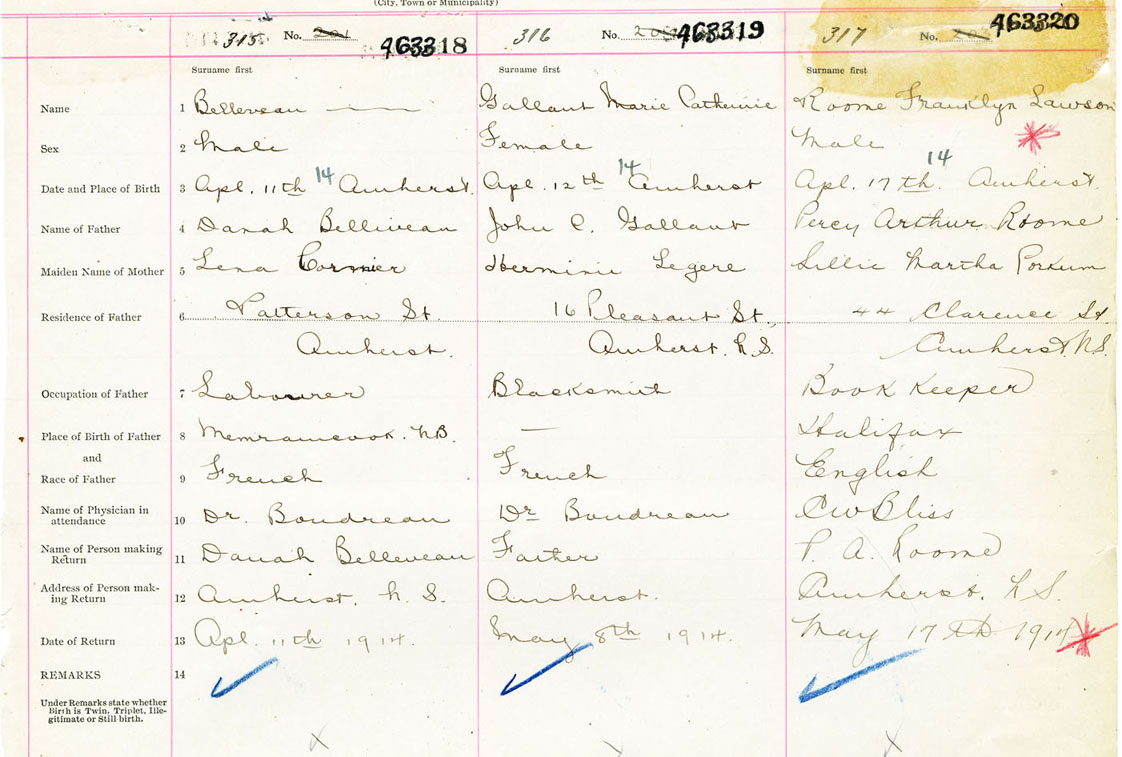 (City, Town or Municipality)
315 No. 463318 316 No. 463319 317 No. 463320
Surname first Surname first Surname first
Name 1 Belleveau Gallant Marie Catherine Roome Franklyn Lawson
Sex 2 Male Female Male
Date and Place of Birth 3 Apl. 11th 14 Amherst. Apl. 12th 14 Amherst Apl. 17th 14 Amherst.
Name of Father 4 Danah Belliveau John C. Gallant Percy Arthur Roome
Maiden Name of Mother 5 Lena Cormier Herminie Legere Lillie Martha
Residence of Father 6 Patterson St. 16 Pleasant St. 44 Clarence St
Amherst. Amherst. N.S. Amherst. N.S.
Occupation of Father 7 Labourer Blacksmith Book Keeper
Place of Birth of Father 8 Memramcook. N.B. — Halifax
and
Race of Father 9 French French English
Name of Physician in
attendance 10 Dr. Boudreau Dr Boudreau CW Bliss
Name of Person making
Return 11 Danah Belleveau Father P. A. Roome
Address of Person mak-
ing Return 12 Amherst. N.S. Amherst. Amherst. N.S.
Date of Return 13 Apl. 11th 1914. May 8th 1914. May 17th 1914
REMARKS 14
Under Remarks state whether
Birth is Twin, Triplet, Ille-
gitimate or Still-birth.